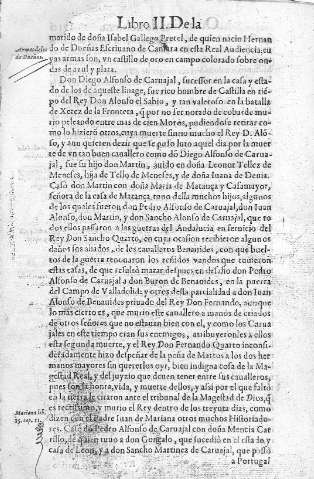 Libro II. De la
marido de doña Isabel Gallego Pretel, de quien nacio Hernan
do de Dueñas Escriuano de Camara en esta Real Audiencia, cu
yas armas son, vn castillo de oro en campo colorado sobre on
das de azul y plata.
Don Diego Alfonso de Caruajal, sucessor en la casa y esta-
do de los de aqueste linage, fue rico hombre de Castilla en tiē
po del Rey Don Alonso el Sabio, y tan valeroso en la batalla
de Xerez de la Frontera, q̃ por no ser notado de cobarde mu-
rio peleando entre mas de cien Moros, pudiendose retirar co-
mo lo hizierō otros, cuya muerte sintio mucho el Rey D. Alō-
so, y aun quieren dezir que se puso luto aquel dia por la muer
te de vn tan buen cauallero como dō Diego Alfonso de Carua-
jal, fue su hijo don Martin, auido en doña Leonor Tellez de
Meneses, hija de Tello de Meneses, y de doña Iuana de Denia.
Casó don Martin con doña Maria de Matança y Casamayor,
señora de la casa de Matança, tuuo della muchos hijos, algunos
de los quales fueron don Pedro Alfonso de Caruajal, don Iuan
Alonso, don Martin, y don Sancho Alonso de Caruajal, que to
dos ellos passaron a las guerras del Andaluzia en seruicio del
Rey Don Sancho Quarto, en cuya ocasion recibieron algunos
daños sus aliados, de los caualleros Benauides, con que buel-
tos de la guerra renouaron los vandos que tuuieron
estas casas, de que resultó matar despues en desafio don Pedro
Alfonso de Caruajal a don de Benauides, en la puerta
del Campo de Valladolid: y otros desta parcialidad a don Iuan
Alonso de Benauides priuado del Rey Don Fernando, aunque
lo mas cierto es, que murio este cauallero a manos de criados
de otros señores que no estauan bien con el, y como los Carua
jales en este tiempo eran sus enemigos, atribuyeronles a ellos
esta segunda muerte, y el Rey Don Fernando Quarto inconsi-
deradamente hizo despeñar de la peña de Martos a los dos her
manos mayores sin quererlos oyr, bien indigna cosa de la Ma-
gestad Real, y del juyzio que deuen tener entre sus caualleros,
pues son la honra, vida, y muerte dellos, y assi por el que faltó
en la tierra le citaron ante el tribunal de la Magestad de Dios, q̃
es rectissimo, y murio el Rey dentro de los treynta dias, como
dizen el Padre Iuan de Mariana otros muchos Historiado-
res. Casó dō Pedro Alfonso de Caruajal con doña Mencia Car
rillo, de quien tuuo a don Gonçalo, que sucedió en el estado y
casa de Leon, y a don Sancho Martinez de Caruajal, que passó
a Portugal
Mariana lib.